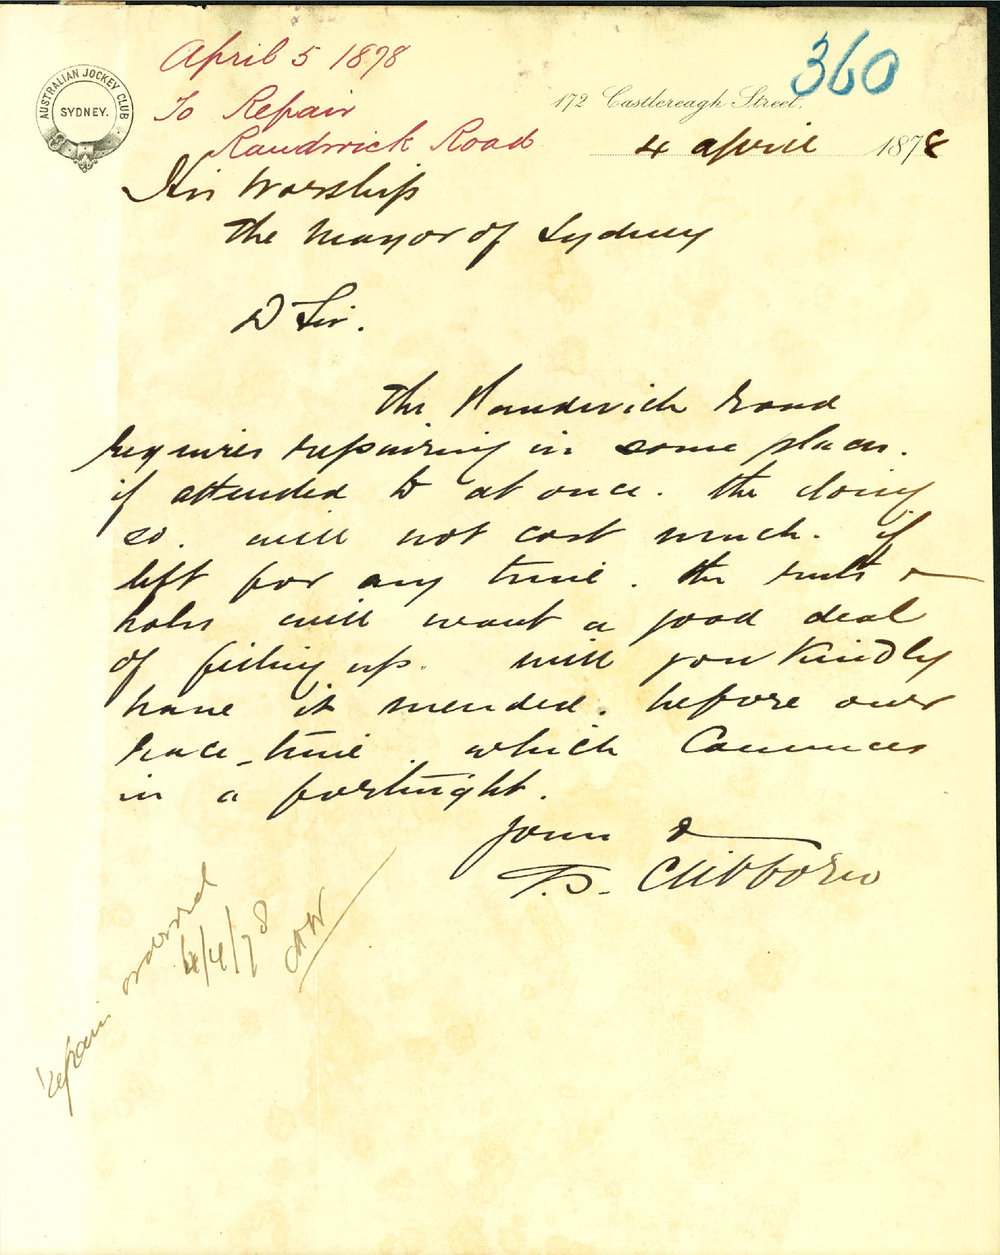 April 5 1878
360
AUSTRALIAN JOCKEY CLUB
SYDNEY.
To Repair
172 Castlereagh Street.
Randwick Road
4 april 1878
His Worship
The Mayor of Sydney
D Sir.
The Randwick road
requires repairing in some places.
if attended to at once. the doing
so. will not cost much. if
left for any time. the ruts &
holes will want a good deal
of filling up. will you kindly
have it mended. before our
race-time which Commences
in a fortnight.
Yours &
T.S. Clibborn
repairs ordered
4/4/78